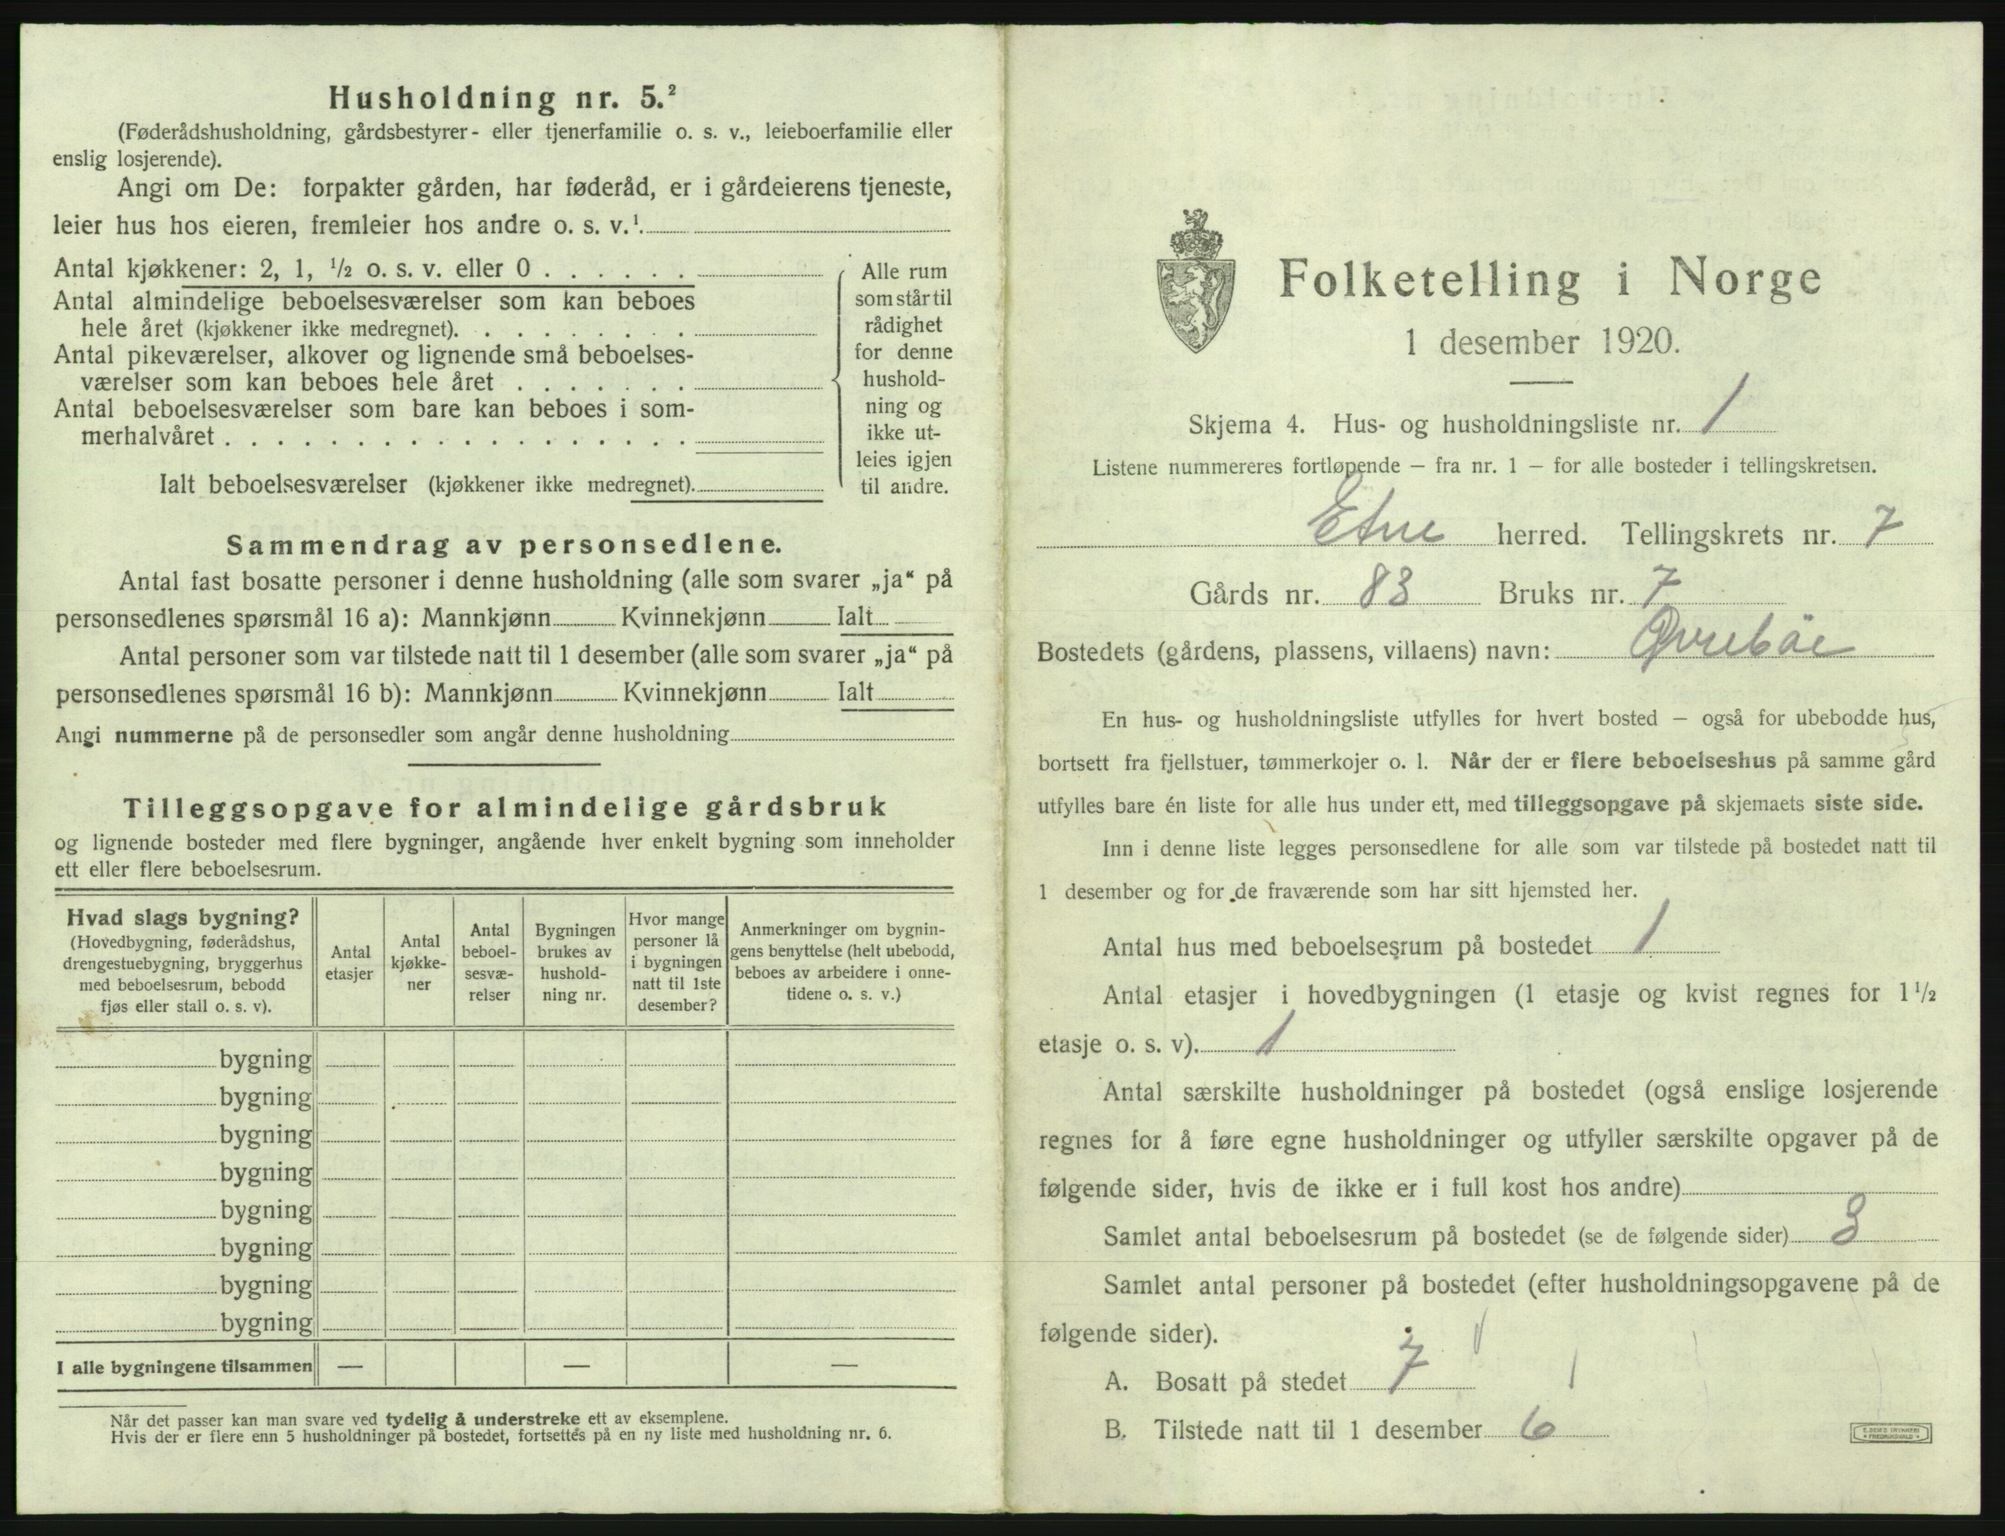 Husholdning nr. 5.²
(Føderådshusholdning, gårdsbestyrer- eller tjenerfamilie o. s. v., leieboerfamilie eller
enslig losjerende).
Angi om De: forpakter gården, har føderåd, er i gårdeierens tjeneste,
leier hus hos eieren, fremleier hos andre o. s. v.¹
Antal kjøkkener: 2, 1, ½ o. s. v. eller 0 . . . . . .
Antal almindelige beboelsesværelser som kan beboes
hele året (kjøkkener ikke medregnet). . . . . . . . .
Antal pikeværelser, alkover og lignende små beboelses-
værelser som kan beboes hele året . . . . . . .
Antal beboelsesværelser som bare kan beboes i som-
merhalvåret . . . . . . . . . . . . . . . . . .
Ialt beboelsesværelser (kjøkkener ikke medregnet).
Alle rum
som står til
rådighet
for denne
hushold-
ning og
ikke ut-
leies igjen
til andre.
Sammendrag av personsedlene.
Antal fast bosatte personer i denne husholdning (alle som svarer „ja“ på
personsedlenes spørsmål 16 a): Mannkjønn Kvinnekjønn Ialt
Antal personer som var tilstede natt til 1 desember (alle som svarer „ja“ på
personsedlenes spørsmål 16 b): Mannkjønn Kvinnekjønn Ialt
Angi nummerne på de personsedler som angår denne husholdning
Tilleggsopgave for almindelige gårdsbruk
og lignende bosteder med flere bygninger, angående hver enkelt bygning som inneholder
ett eller flere beboelsesrum.
Hvad slags bygning?
(Hovedbygning, føderådshus,
drengestuebygning, bryggerhus
med beboelsesrum, bebodd
fjøs eller stall o. s. v).
Antal
etasjer
Antal
kjøkke-
ner
Antal
beboel-
sesvæ-
relser
Bygningen
brukes av
hushold-
ning nr.
Hvor mange
personer lå
i bygningen
natt til 1ste
desember?
Anmerkninger om bygnin-
gens benyttelse (helt ubebodd,
beboes av arbeidere i onne-
tidene o. s. v.)
bygning
bygning
bygning
bygning
bygning
bygning
bygning
bygning
I alle bygningene tilsammen — — —
Når det passer kan man svare ved tydelig å understreke ett av eksemplene.
Hvis der er flere enn 5 husholdninger på bostedet, fortsettes på en ny liste med husholdning nr. 6.
Folketelling i Norge
1 desember 1920.
Skjema 4. Hus- og husholdningsliste nr. 1
Listene nummereres fortløpende – fra nr. 1 – for alle bosteder i tellingskretsen.
Etne herred. Tellingskrets nr. 7
Gårds nr. 83 Bruks nr. 7
Bostedets (gårdens, plassens, villaens) navn: Øvrebøe
En hus- og husholdningsliste utfylles for hvert bosted – også for ubebodde hus,
bortsett fra fjellstuer, tømmerkojer o. l. Når der er flere beboelseshus på samme gård
utfylles bare én liste for alle hus under ett, med tilleggsopgave på skjemaets siste side.
Inn i denne liste legges personsedlene for alle som var tilstede på bostedet natt til
1 desember og for de fraværende som har sitt hjemsted her.
Antal hus med beboelsesrum på bostedet 1
Antal etasjer i hovedbygningen (1 etasje og kvist regnes for 1½
etasje o. s. v). 1
Antal særskilte husholdninger på bostedet (også enslige losjerende
regnes for å føre egne husholdninger og utfyller særskilte opgaver på de
følgende sider, hvis de ikke er i full kost hos andre)
Samlet antal beboelsesrum på bostedet (se de følgende sider) 3
Samlet antal personer på bostedet (efter husholdningsopgavene på de
følgende sider).
A. Bosatt på stedet 7
B. Tilstede natt til 1 desember 6